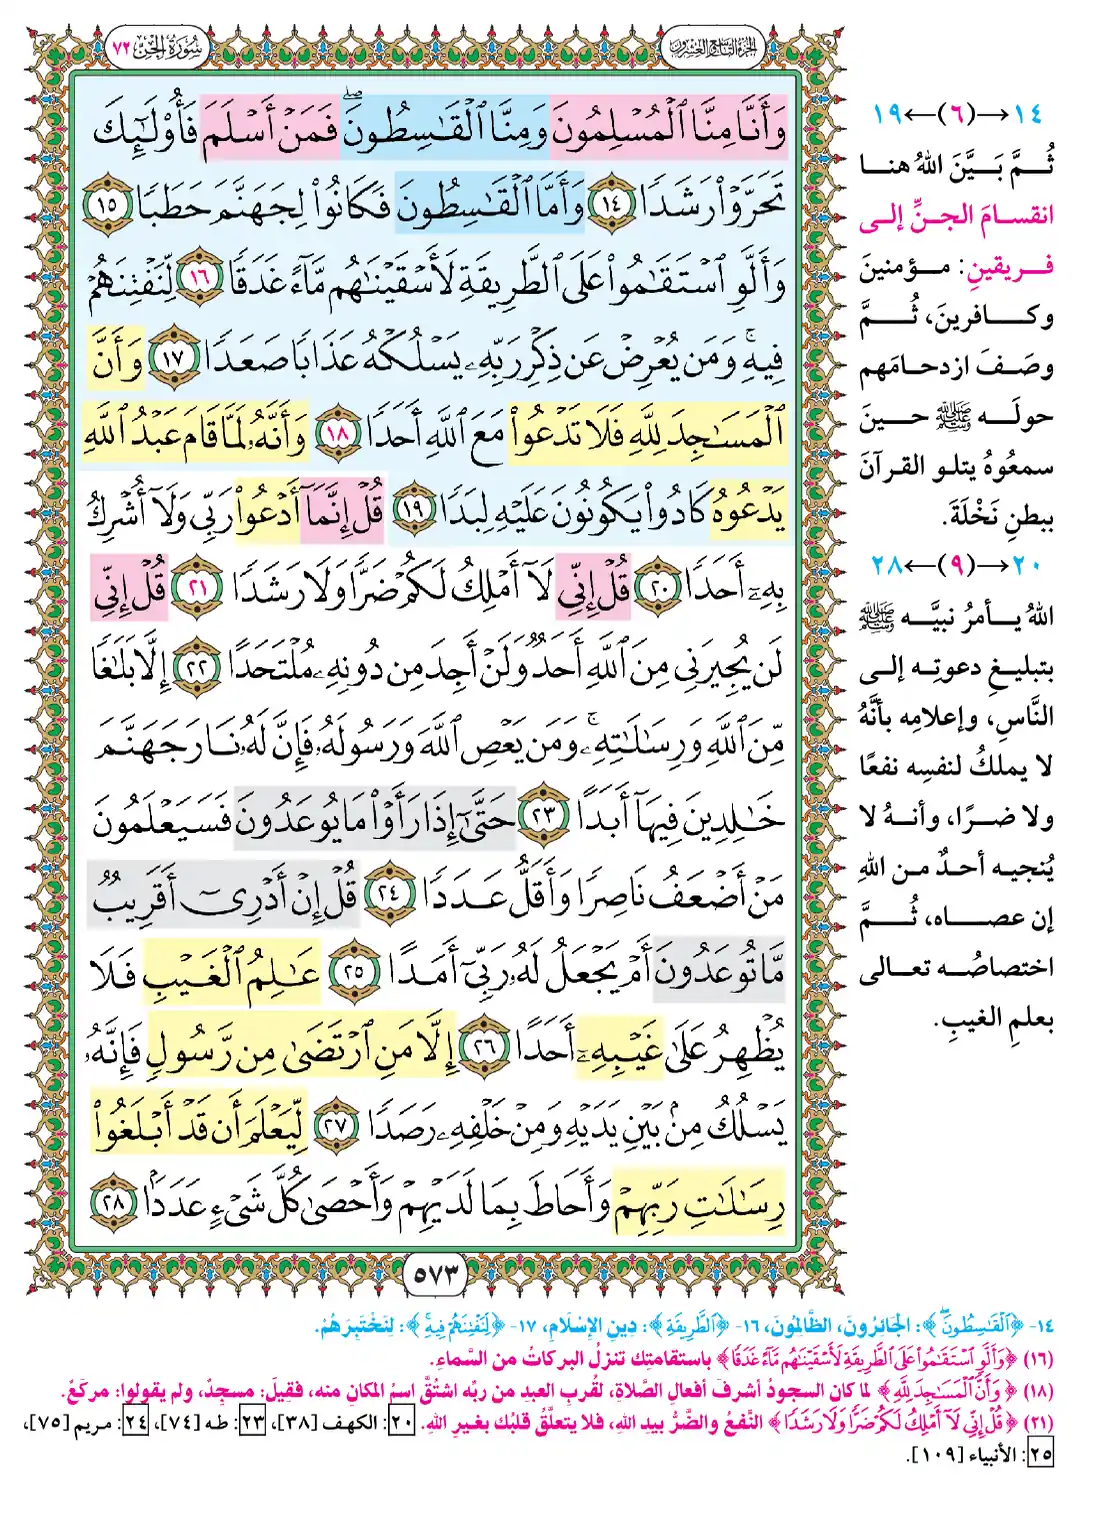 الجزء التاسع والعشرون
سُورَةُ الْجِنِّ ٧٢
وَأَنَّا مِنَّا ٱلْمُسْلِمُونَ وَمِنَّا ٱلْقَـٰسِطُونَ ۖ فَمَنْ أَسْلَمَ فَأُو۟لَـٰٓئِكَ
تَحَرَّوْا۟ رَشَدًا ١٤ وَأَمَّا ٱلْقَـٰسِطُونَ فَكَانُوا۟ لِجَهَنَّمَ حَطَبًا ١٥
وَأَلَّوِ ٱسْتَقَـٰمُوا۟ عَلَى ٱلطَّرِيقَةِ لَأَسْقَيْنَـٰهُم مَّآءً غَدَقًا ١٦ لِّنَفْتِنَهُمْ
فِيهِ ۚ وَمَن يُعْرِضْ عَن ذِكْرِ رَبِّهِۦ يَسْلُكْهُ عَذَابًا صَعَدًا ١٧ وَأَنَّ
ٱلْمَسَـٰجِدَ لِلَّهِ فَلَا تَدْعُوا۟ مَعَ ٱللَّهِ أَحَدًا ١٨ وَأَنَّهُۥ لَمَّا قَامَ عَبْدُ ٱللَّهِ
يَدْعُوهُ كَادُوا۟ يَكُونُونَ عَلَيْهِ لِبَدًا ١٩ قُلْ إِنَّمَآ أَدْعُوا۟ رَبِّى وَلَآ أُشْرِكُ
بِهِۦٓ أَحَدًا ٢٠ قُلْ إِنِّى لَآ أَمْلِكُ لَكُمْ ضَرًّا وَلَا رَشَدًا ٢١ قُلْ إِنِّى
لَن يُجِيرَنِى مِنَ ٱللَّهِ أَحَدٌ وَلَنْ أَجِدَ مِن دُونِهِۦ مُلْتَحَدًا ٢٢ إِلَّا بَلَـٰغًا
مِّنَ ٱللَّهِ وَرِسَـٰلَـٰتِهِۦ ۚ وَمَن يَعْصِ ٱللَّهَ وَرَسُولَهُۥ فَإِنَّ لَهُۥ نَارَ جَهَنَّمَ
خَـٰلِدِينَ فِيهَآ أَبَدًا ٢٣ حَتَّىٰٓ إِذَا رَأَوْا۟ مَا يُوعَدُونَ فَسَيَعْلَمُونَ
مَنْ أَضْعَفُ نَاصِرًا وَأَقَلُّ عَدَدًا ٢٤ قُلْ إِنْ أَدْرِىٓ أَقَرِيبٌ
مَّا تُوعَدُونَ أَمْ يَجْعَلُ لَهُۥ رَبِّىٓ أَمَدًا ٢٥ عَـٰلِمُ ٱلْغَيْبِ فَلَا
يُظْهِرُ عَلَىٰ غَيْبِهِۦٓ أَحَدًا ٢٦ إِلَّا مَنِ ٱرْتَضَىٰ مِن رَّسُولٍ فَإِنَّهُۥ
يَسْلُكُ مِنۢ بَيْنِ يَدَيْهِ وَمِنْ خَلْفِهِۦ رَصَدًا ٢٧ لِّيَعْلَمَ أَن قَدْ أَبْلَغُوا۟
رِسَـٰلَـٰتِ رَبِّهِمْ وَأَحَاطَ بِمَا لَدَيْهِمْ وَأَحْصَىٰ كُلَّ شَىْءٍ عَدَدًۢا ٢٨
٥٧٣
١٤→(٦)←١٩
ثُمَّ بَيَّنَ اللهُ هنا
انقسامَ الجنِّ إلى
فريقينِ: مؤمنينَ
وكافرينَ، ثُمَّ
وصَفَ ازدحامَهم
حولَه ﷺ حينَ
سمعُوهُ يتلو القرآنَ
ببطنِ نَخْلَةَ.
٢٠→(٩)←٢٨
اللهُ يأمرُ نبيَّه ﷺ
بتبليغِ دعوتِه إلى
النَّاسِ، وإعلامِه بأنَّهُ
لا يملكُ لنفسِه نفعًا
ولا ضرًا، وأنه لا
يُنجيه أحدٌ من اللهِ
إن عصاه، ثُمَّ
اختصاصُه تعالى
بعلمِ الغيبِ.
١٤- ﴿ٱلْقَـٰسِطُونَ ۖ﴾: الجَائِرُونَ، الظَّالِمُونَ، ١٦- ﴿ٱلطَّرِيقَةِ﴾: دِينِ الإِسْلَامِ، ١٧- ﴿لِّنَفْتِنَهُمْ فِيهِ ۚ﴾: لِنَخْتَبِرَهُمْ.
(١٦) ﴿وَأَلَّوِ ٱسْتَقَـٰمُوا۟ عَلَى ٱلطَّرِيقَةِ لَأَسْقَيْنَـٰهُم مَّآءً غَدَقًا﴾ باستقامتِك تنزلُ البركاتُ من السَّماءِ.
(١٨) ﴿وَأَنَّ ٱلْمَسَـٰجِدَ لِلَّهِ﴾ لما كان السجودُ أشرفَ أفعالِ الصَّلاةِ، لقُربِ العبدِ من ربِّه اشتُقَّ اسمُ المكانِ منه، فقِيلَ: مسجِدٌ، ولم يقولوا: مركَعٌ.
(٢١) ﴿قُلْ إِنِّى لَآ أَمْلِكُ لَكُمْ ضَرًّا وَلَا رَشَدًا﴾ النَّفعُ والضَّرُّ بيدِ اللهِ، فلا يتعلَّقْ قلبُك بغيرِ اللهِ. ٢٠: الكهف [٣٨]، ٢٣: طه [٧٤]، ٢٤: مريم [٧٥]،
٢٥: الأنبياء [١٠٩].